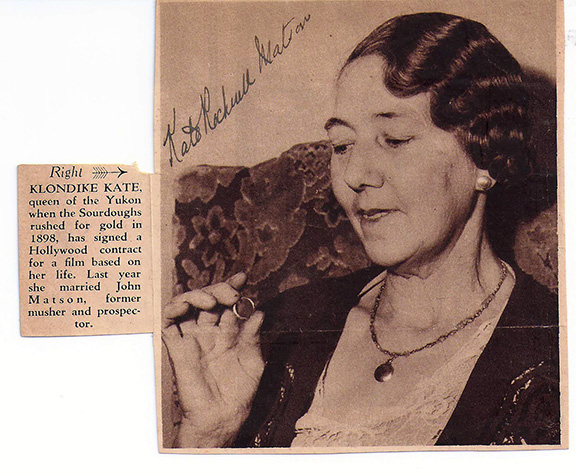 Kate Rockwell Matson
Right
KLONDIKE KATE,
queen of the Yukon
when the Sourdoughs
rushed for gold in
1898, has signed a
Hollywood contract
for a film based on
her life. Last year
she married John
Matson, former
musher and prospec-
tor.